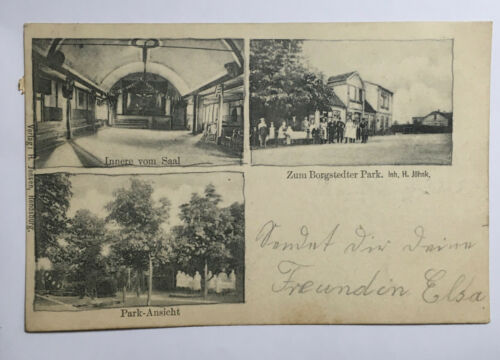 Innere vom Saal
Zum Borgstedter Park. Inh. H. Jöhnk,
Park-Ansicht
Verlag: H. Jessen, Rendsburg.
Sendet Dir Deine
Freundin Elsa